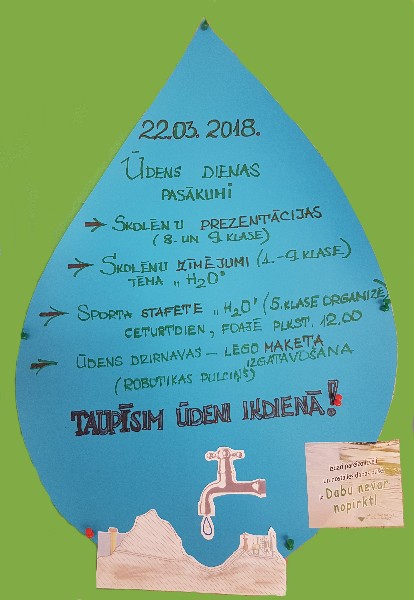 22.03.2018.
ŪDENS DIENAS
PASĀKUMI
SKOLĒNU PREZENTĀCIJAS
(8. UN 9. KLASE)
SKOLĒNU ZĪMĒJUMI (1.-9. KLASE)
TĒMA „H2O"
SPORTA STAFETE „H2O" (5. KLASE ORGANIZĒ)
CETURTDIEN, FOAJĒ PLKST. 12.00
ŪDENS DZIRNAVAS - LEGO MAKETA
IZGATAVOŠANA
(ROBOTIKAS PULCIŅŠ)
TAUPĪSIM ŪDENI IKDIENĀ!
Dabu nevar
nopirkt!